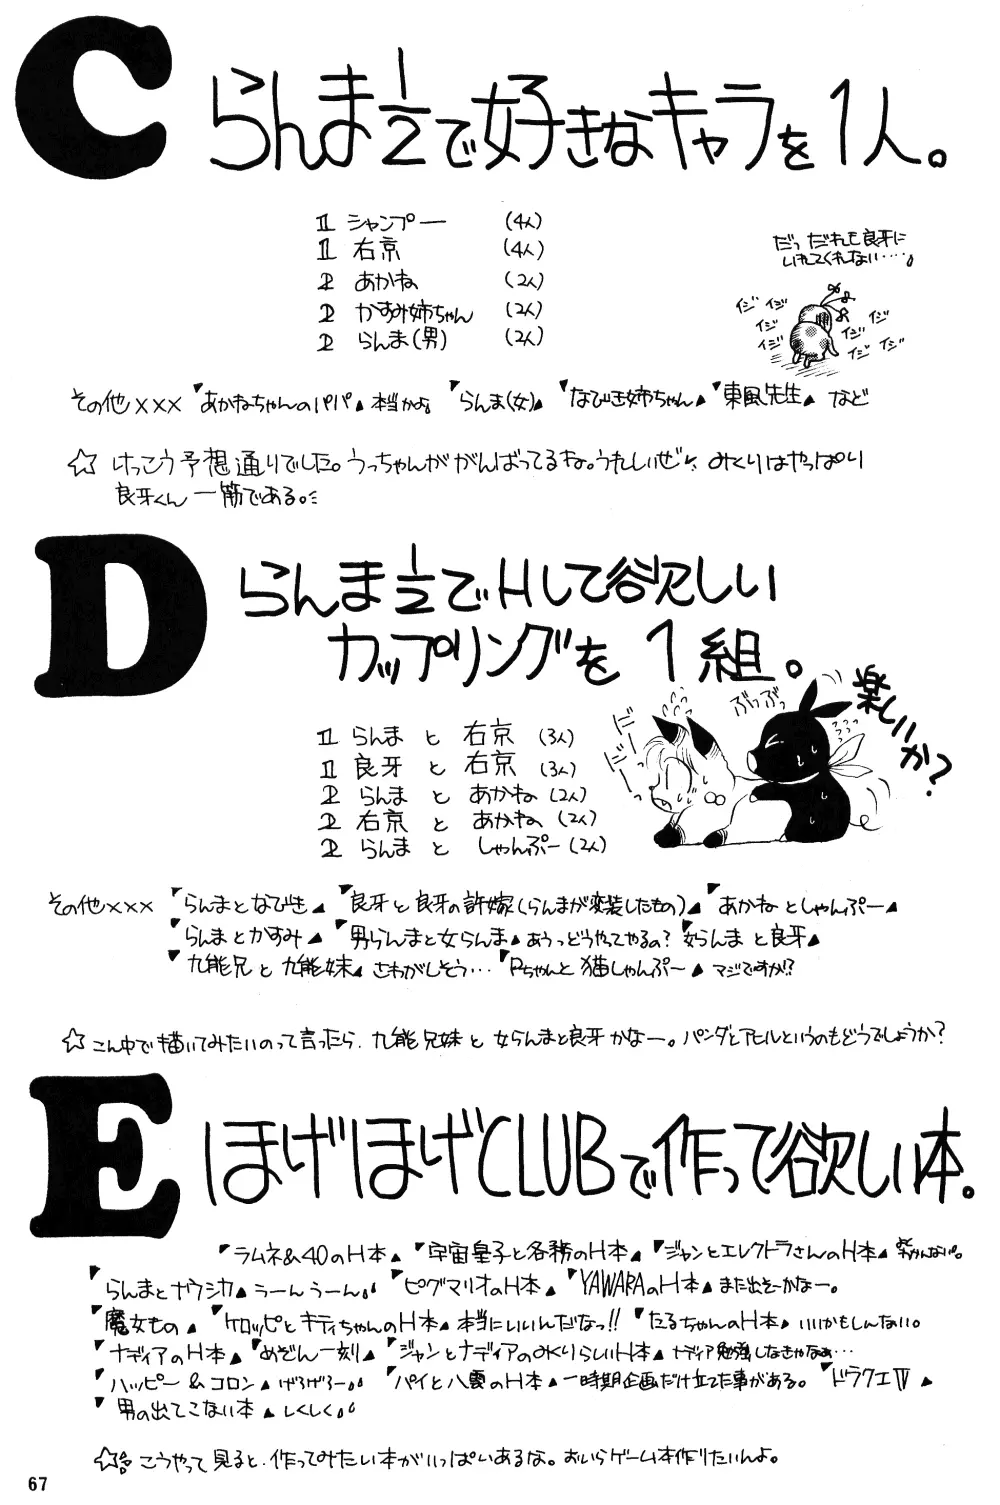 C らんま1/2で好きなキャラを1人。
1 シャンプー (4人)
1 右京 (4人)
2 あかね (2人)
2 かすみ姉ちゃん (2人)
2 らんま(男) (2人)
だっ だれも良牙に
いれてくれない・・・・。
イジ イジ
イジ イジ イジ
イジ イジ イジ
その他××× 「あかねちゃんのパパ」本当かよ 「らんま(女)」 「なびき姉ちゃん」 「東風先生」 など
☆ けっこう予想通りでした。うっちゃんががんばってるね。うれしいぜ みくりはやっぱり
良牙くん一筋である。
D らんま1/2でHして欲しい
カップリングを1組。
1 らんま と 右京 (3人)
1 良牙 と 右京 (3人)
2 らんま と あかね (2人)
2 右京 と あかね (2人)
2 らんま と しゃんぷー (2人)
ぶっぶっ
楽しいか?
その他××× 「らんまとなびき」 「良牙と良牙の許嫁(らんまが変装したもの)」 「あかねとしゃんぷー」
「らんまとかすみ」 「男らんまと女らんま」あうっどうやってやるの? 「女らんまと良牙」
「九能兄と九能妹」さわがしそう・・・ 「Pちゃんと猫しゃんぷー」マジですか!?
☆ こん中で描いてみたいのって言ったら、九能兄妹と女らんまと良牙かなー。パンダとアヒルというのもどうでしょうか?
E ほげほげCLUBで作って欲しい本。
「ラムネ&40のH本」 「宇宙皇子と各務のH本」 「ジャンとエレクトラさんのH本」
「らんまとナウシカ」うーんうーん。 「ピグマリオのH本」 「YAWARAのH本」また出そーかなー。
「魔女もの」 「ケロッピとキティちゃんのH本」本当にいいんだなっ!! 「たるちゃんのH本」いいかもしんない。
「ナディアのH本」 「めぞん一刻」 「ジャンとナディアのみくりらしいH本」ナディア勉強しなきゃなぁ・・・
「ハッピー&コロン」げろげろー。 「パイと八雲のH本」一時期企画だけ立てた事がある。 「ドラクエⅣ」
「男の出てこない本」しくしく。
☆ こうやって見ると、作ってみたい本がいっぱいあるな。おいらゲーム本作りたいんよ。
67